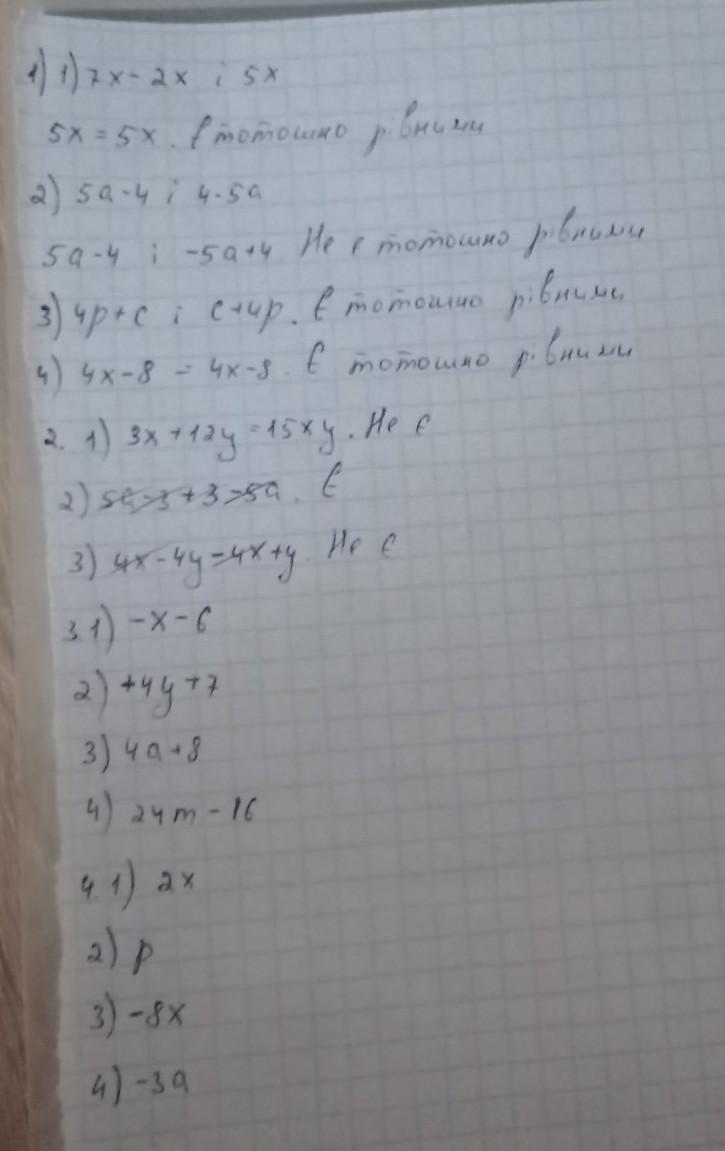 1) 1) 7x - 2x і 5x
5x = 5x. Є тотошно рівними
2) 5a - 4 і 4 - 5a
5a - 4 і -5a + 4 Не є тотошно рівними
3) 4p + c і c + 4p. Є тотошно рівними
4) 4x - 8 = 4x - 8. Є тотошно рівними
2. 1) 3x + 12y = 15xy. Не є
2) 5a - 3 + 3 = 5a. Є
3) 4x - 4y = 4x + y. Не є
3.1) -x - 6
2) +4y + 7
3) 4a + 8
4) 24m - 16
4.1) 2x
2) p
3) -8x
4) -3a